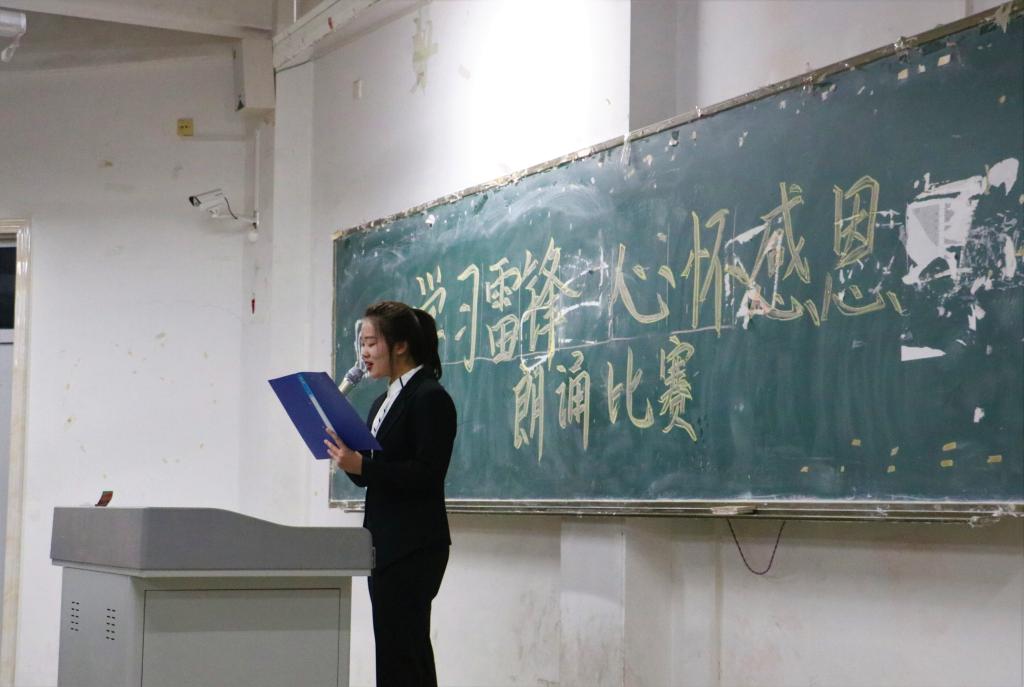 学习雷锋 心怀感恩
朗诵比赛